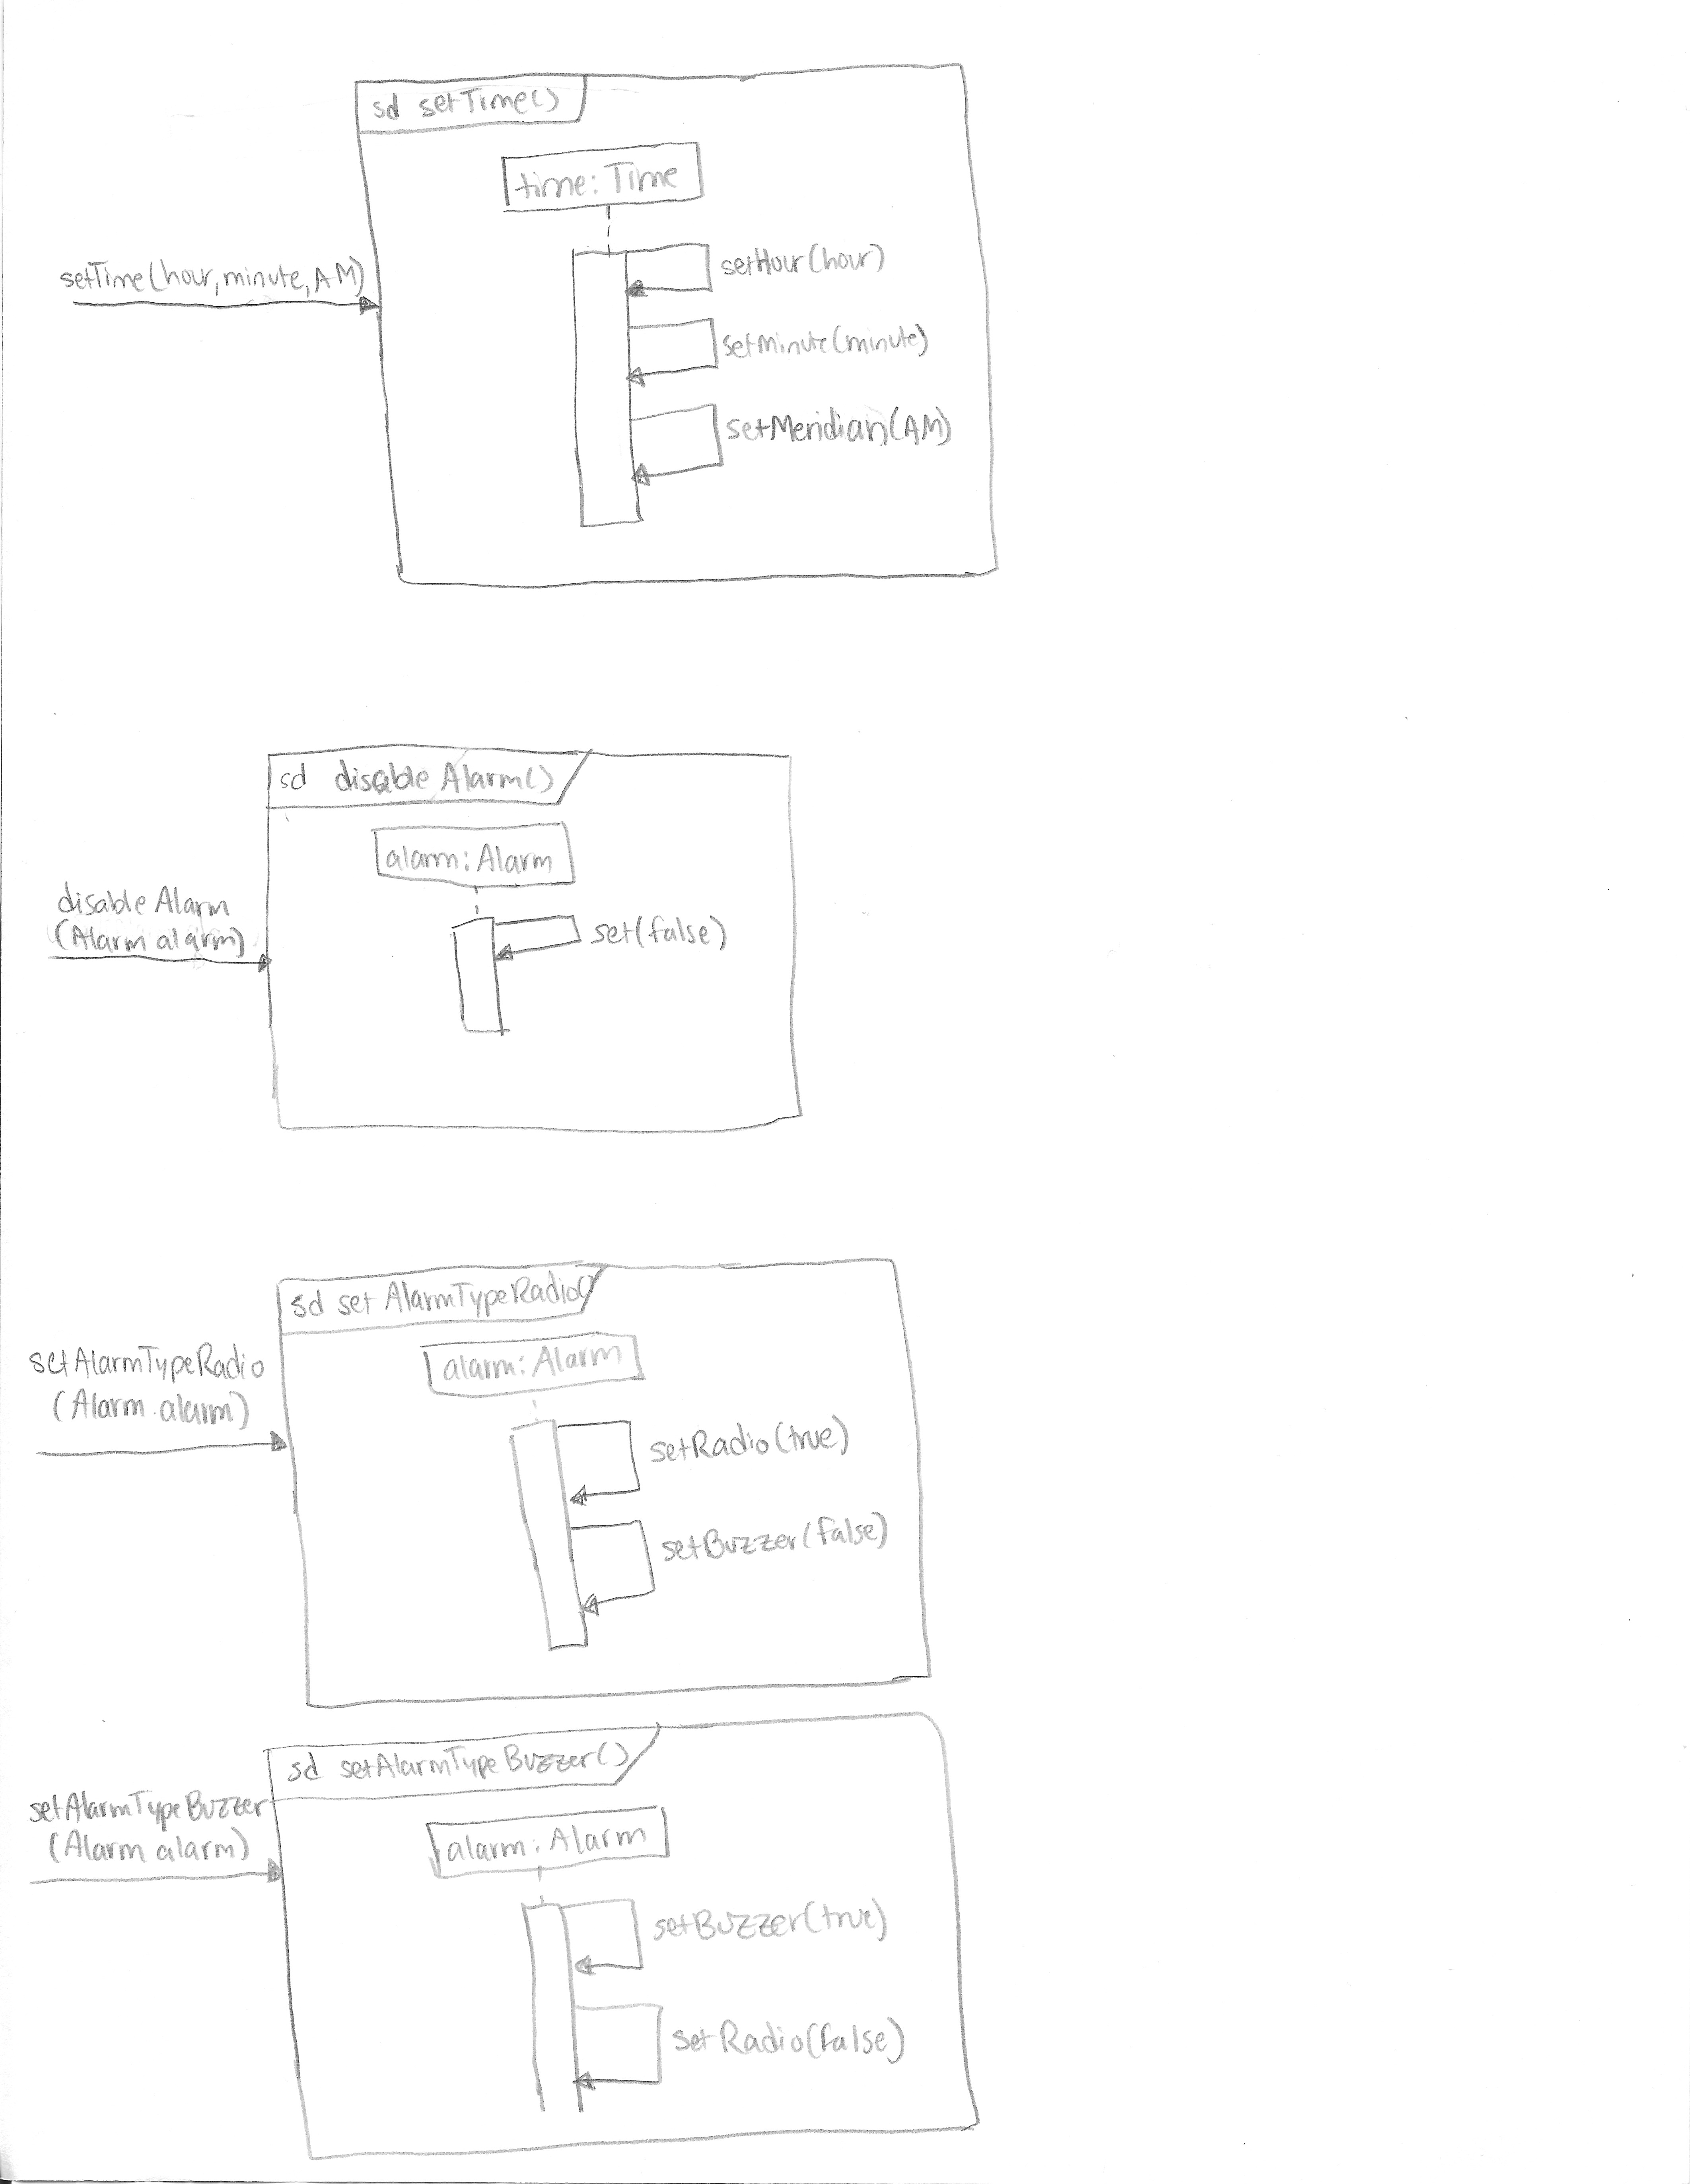 sd setTime()
time: Time
setHour(hour)
setTime(hour, minute, AM)
setMinute(minute)
setMeridian(AM)
sd disableAlarm()
alarm: Alarm
disableAlarm
(Alarm alarm)
set(false)
sd setAlarmTypeRadio()
alarm: Alarm
setAlarmTypeRadio
(Alarm alarm)
setRadio(true)
setBuzzer(false)
sd setAlarmTypeBuzzer()
setAlarmTypeBuzzer
(Alarm alarm)
alarm: Alarm
setBuzzer(true)
setRadio(false)